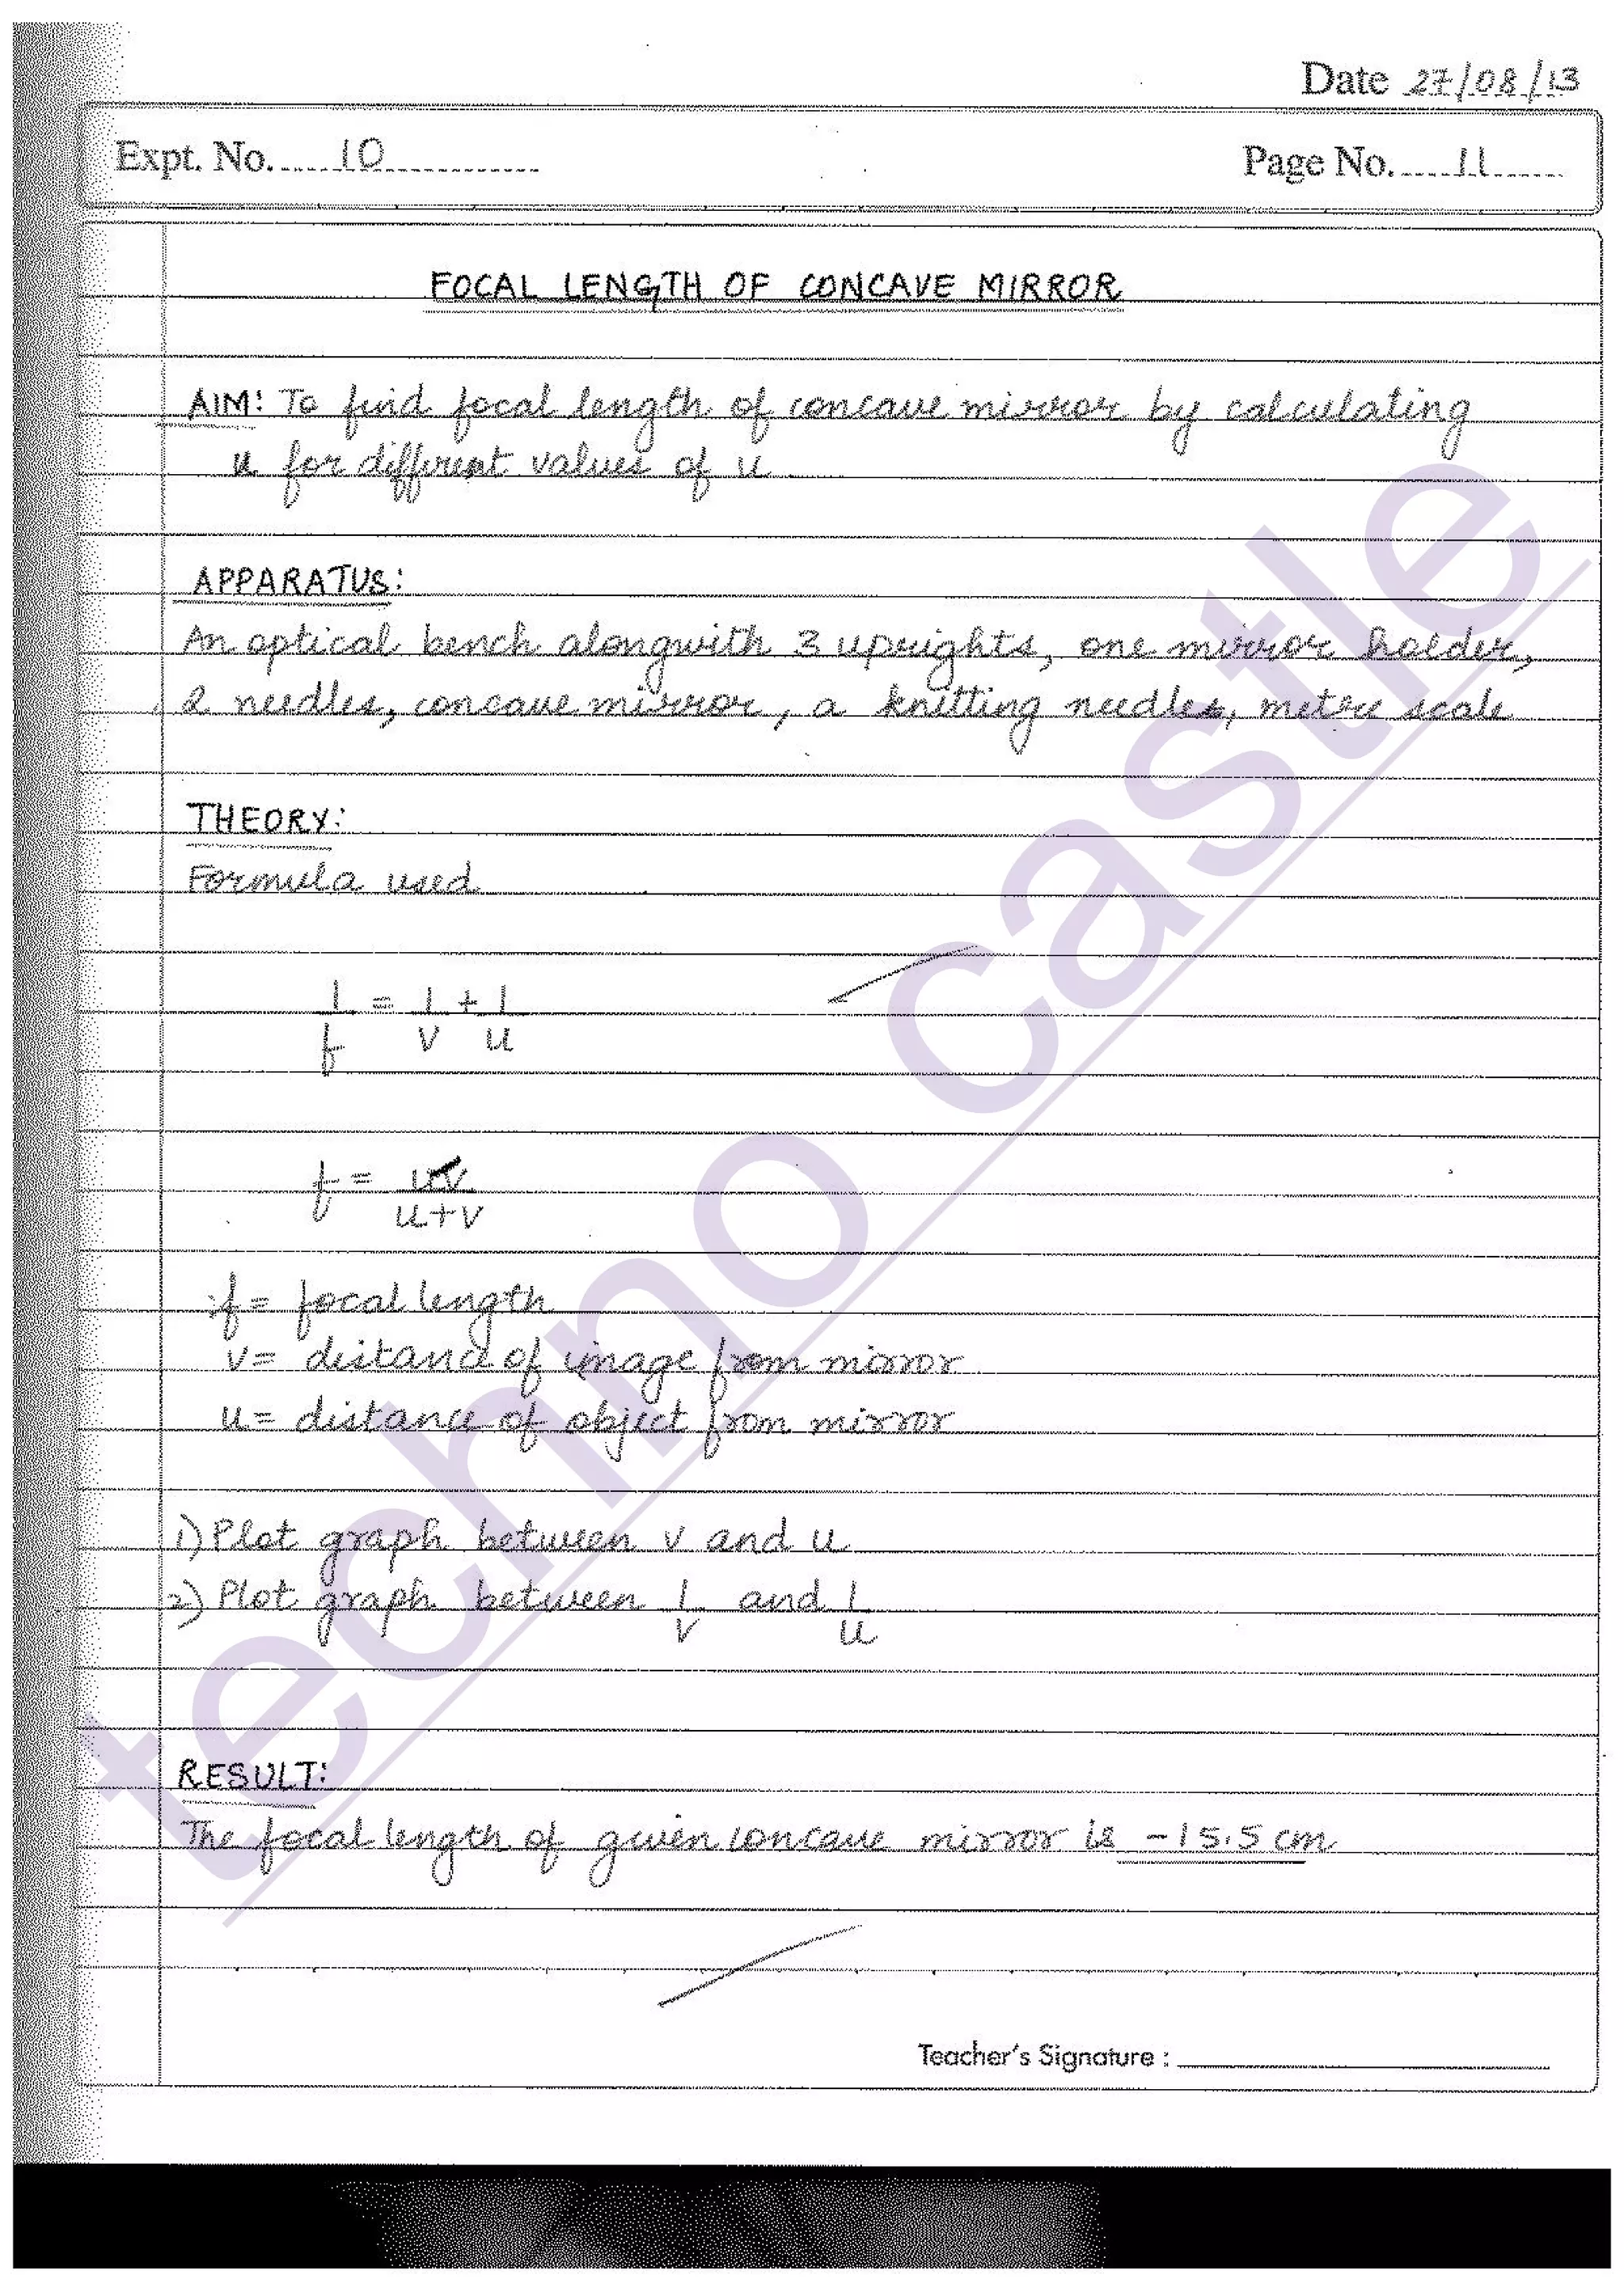 Date 27/08/13
Expt. No. 10
Page No. 11
FOCAL LENGTH OF CONCAVE MIRROR
AIM: To find focal length of concave mirror by calculating
u for different values of u
APPARATUS:
An optical bench alongwith 3 uprights, one mirror holder,
2 needles, concave mirror, a knitting needles, metre scale
THEORY:
Formula used
1/f = 1/v + 1/u
f = uv/u+v
f = focal length
v = distance of image from mirror
u = distance of object from mirror
1) Plot graph between v and u
2) Plot graph between 1/v and 1/u
RESULT:
The focal length of given concave mirror is -15.5 cm
Teacher's Signature :
techno castle